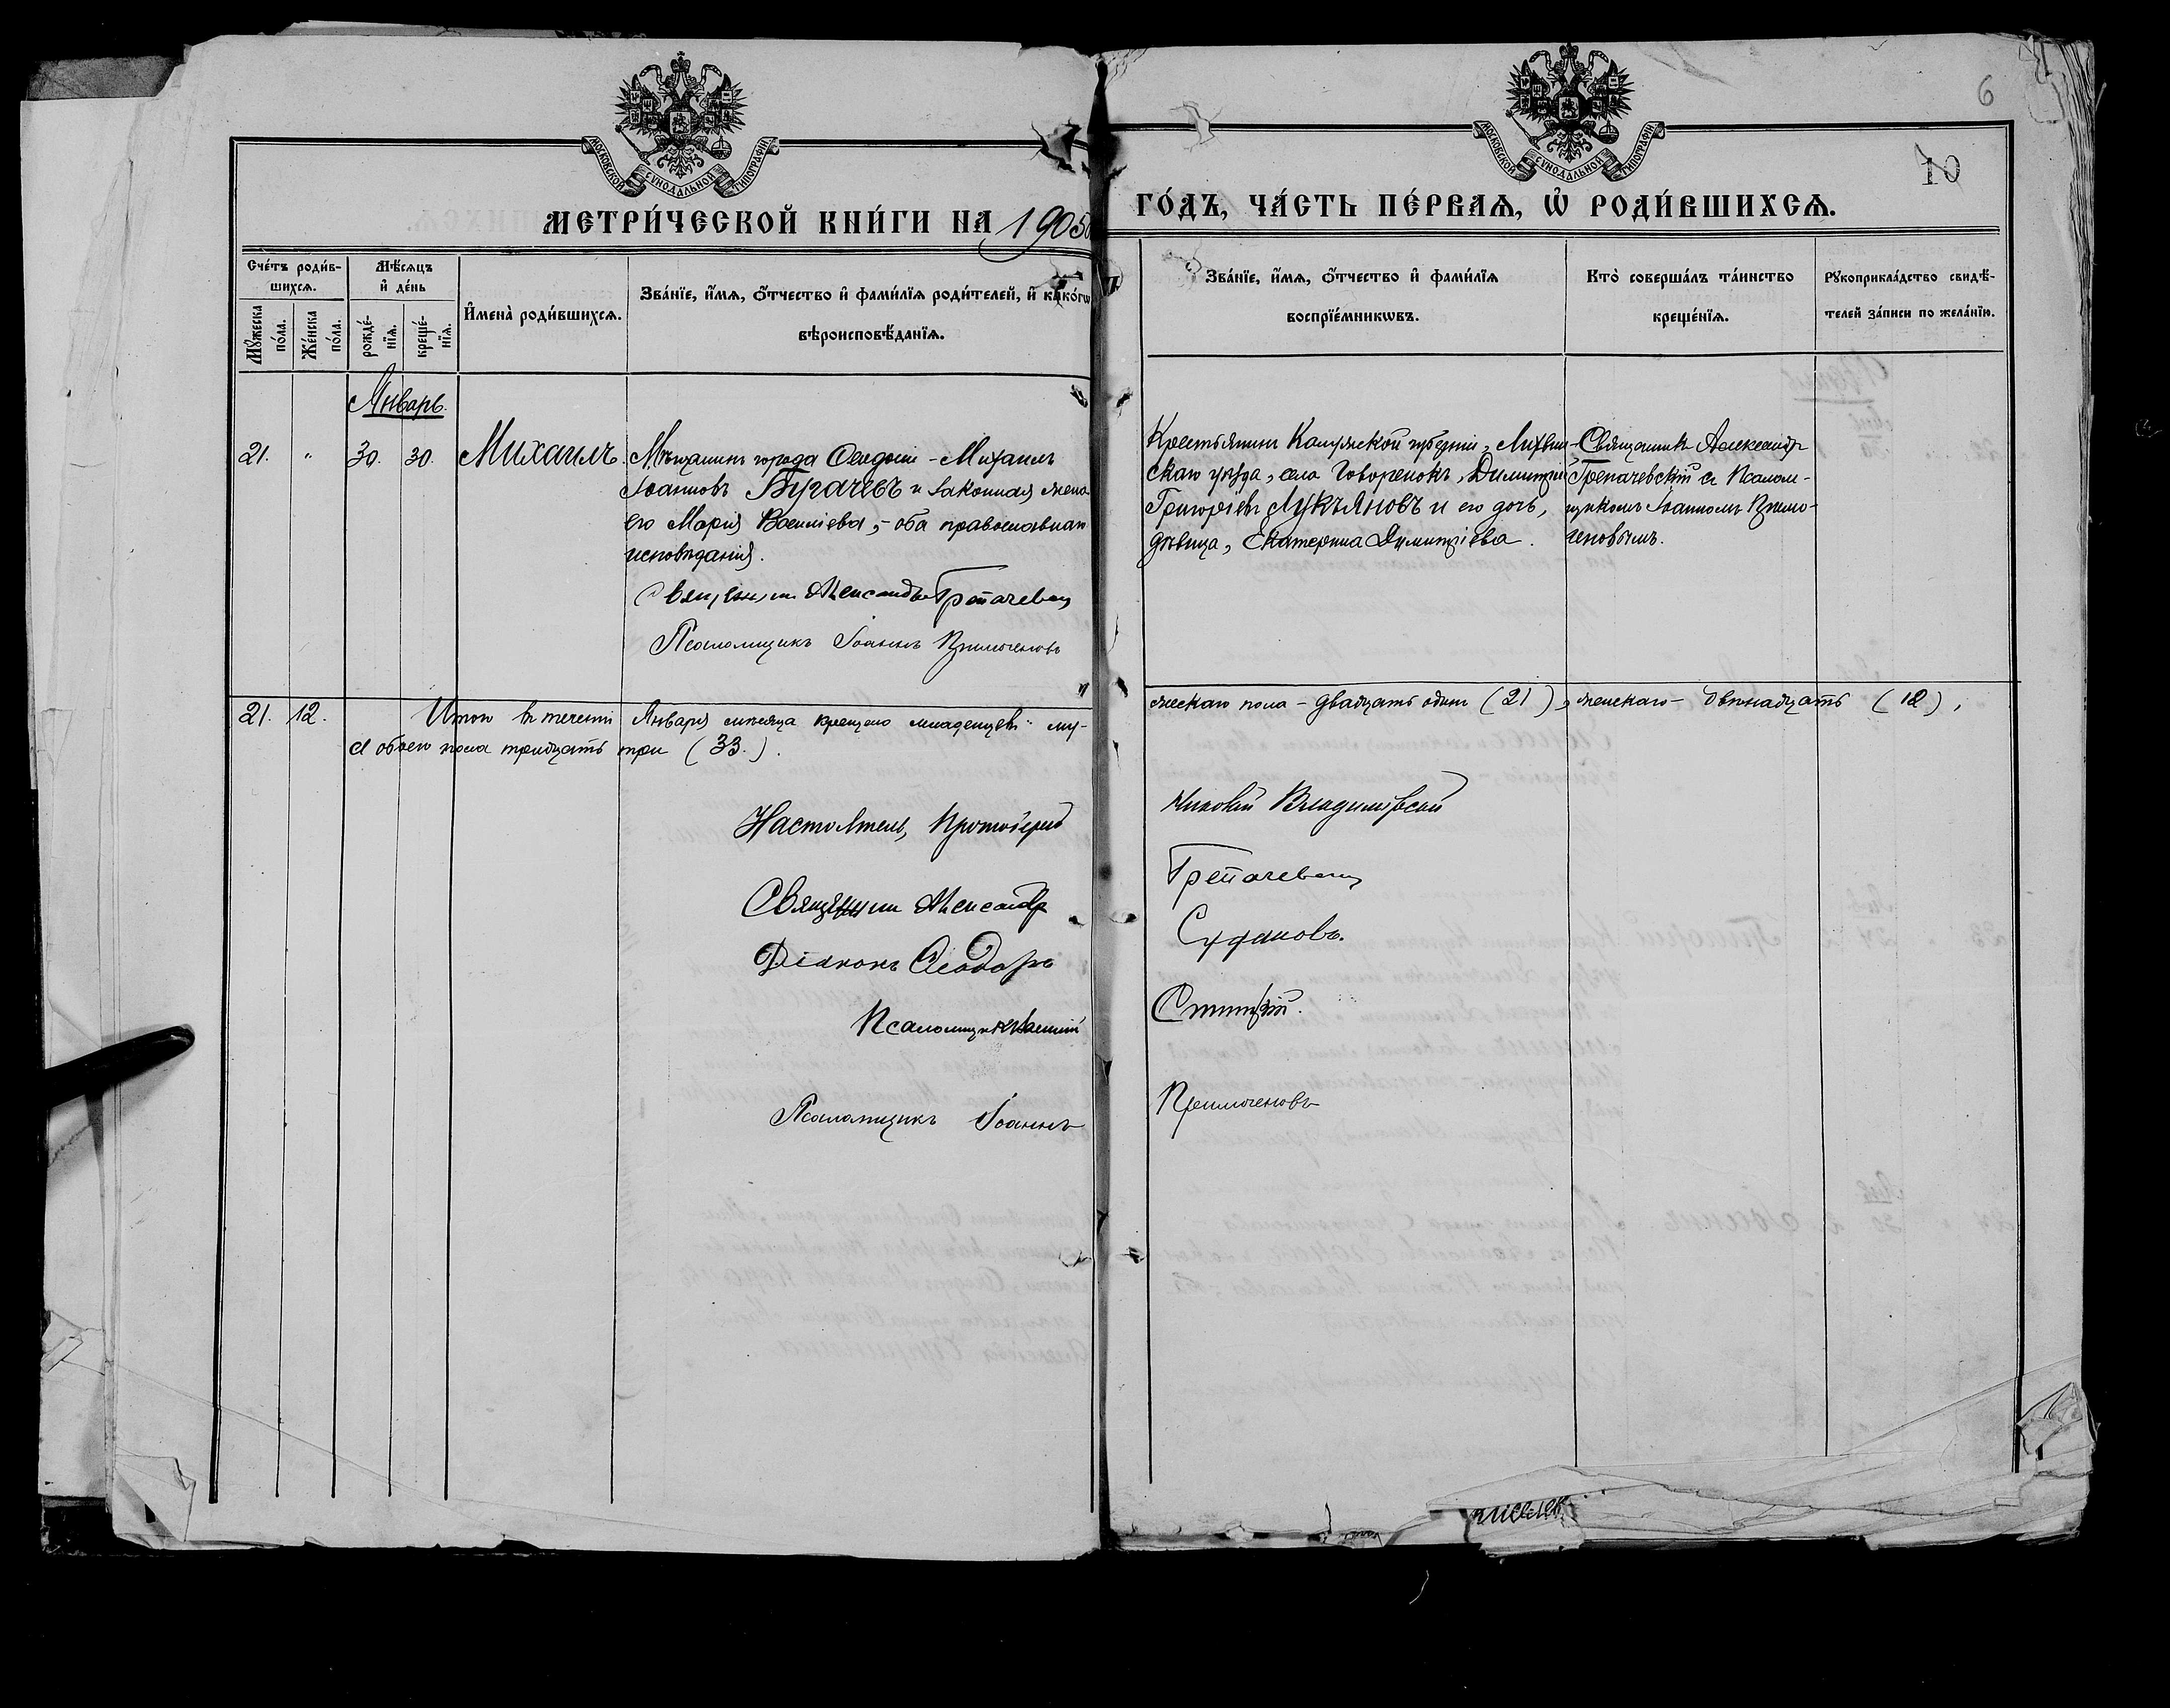 МОСКОВСКОЙ СѴНОДАЛЬНОЙ ТИПОГРАФІИ
МОСКОВСКОЙ СѴНОДАЛЬНОЙ ТИПОГРАФІИ
6
10
МЕТРИ́ЧЕСКОЙ КНИ́ГИ НА 1905
ГО́ДЪ, ЧА́СТЬ ПЕ́РВАѦ, Ѡ҆ РОДИ́ВШИХСѦ.
Сче́тъ роди́в-
шихсѧ.
Мѹ́жеска по́ла.
Же́нска по́ла.
Мѣ́сѧцъ
и҆ де́нь
рожде́-
нїѧ.
креще́-
нїѧ.
И҆мена̀ роди́вшихсѧ.
Зва́нїе, и҆́мѧ, ѻ҆́тчество и҆ фами́лїѧ роди́телей, и҆ како́гѡ
вѣроисповѣ́данїѧ.
Зва́нїе, и҆́мѧ, ѻ҆́тчество и҆ фами́лїѧ
воспрїе́мникѡвъ.
Кто̀ соверша́лъ та́инство
креще́нїѧ.
Рѹкоприкла́дство свидѣ́-
телей за́писи по жела́нїю.
Январь.
21. " 30. 30. Михаилъ.
Мѣщанинъ города Ѳеодосіи - Михаилъ
Іоанновъ Бугачевъ и законная жена
его Марія Василіева, - оба православнаго
исповѣданія.
Священникъ Александръ Гретачевскій
Псаломщикъ Іоаннъ Примоченовъ
Крестьянинъ Калужской губерніи, Лихвин-
скаго уѣзда, села Говоренокъ, Димитрій
Григоріевъ Лукьяновъ и его дочь,
дѣвица, Екатерина Димитріева.
Священникъ Александръ
Гретачевскій съ Псалом-
щикомъ Іоанномъ Примо-
ченовымъ.
21. 12. Итого въ теченіи Января мѣсяца крещено младенцевъ: му-
жескаго пола - двадцать одинъ (21), женскаго - двѣнадцать (12),
а обоего пола тридцать три (33.).
Настоятель, Протоіерей
Владимірскій
Священникъ Александръ Гретачевскій
Діаконъ Ѳеодоръ Судаковъ.
Псаломщикъ Василій
Псаломщикъ Іоаннъ Примоченовъ